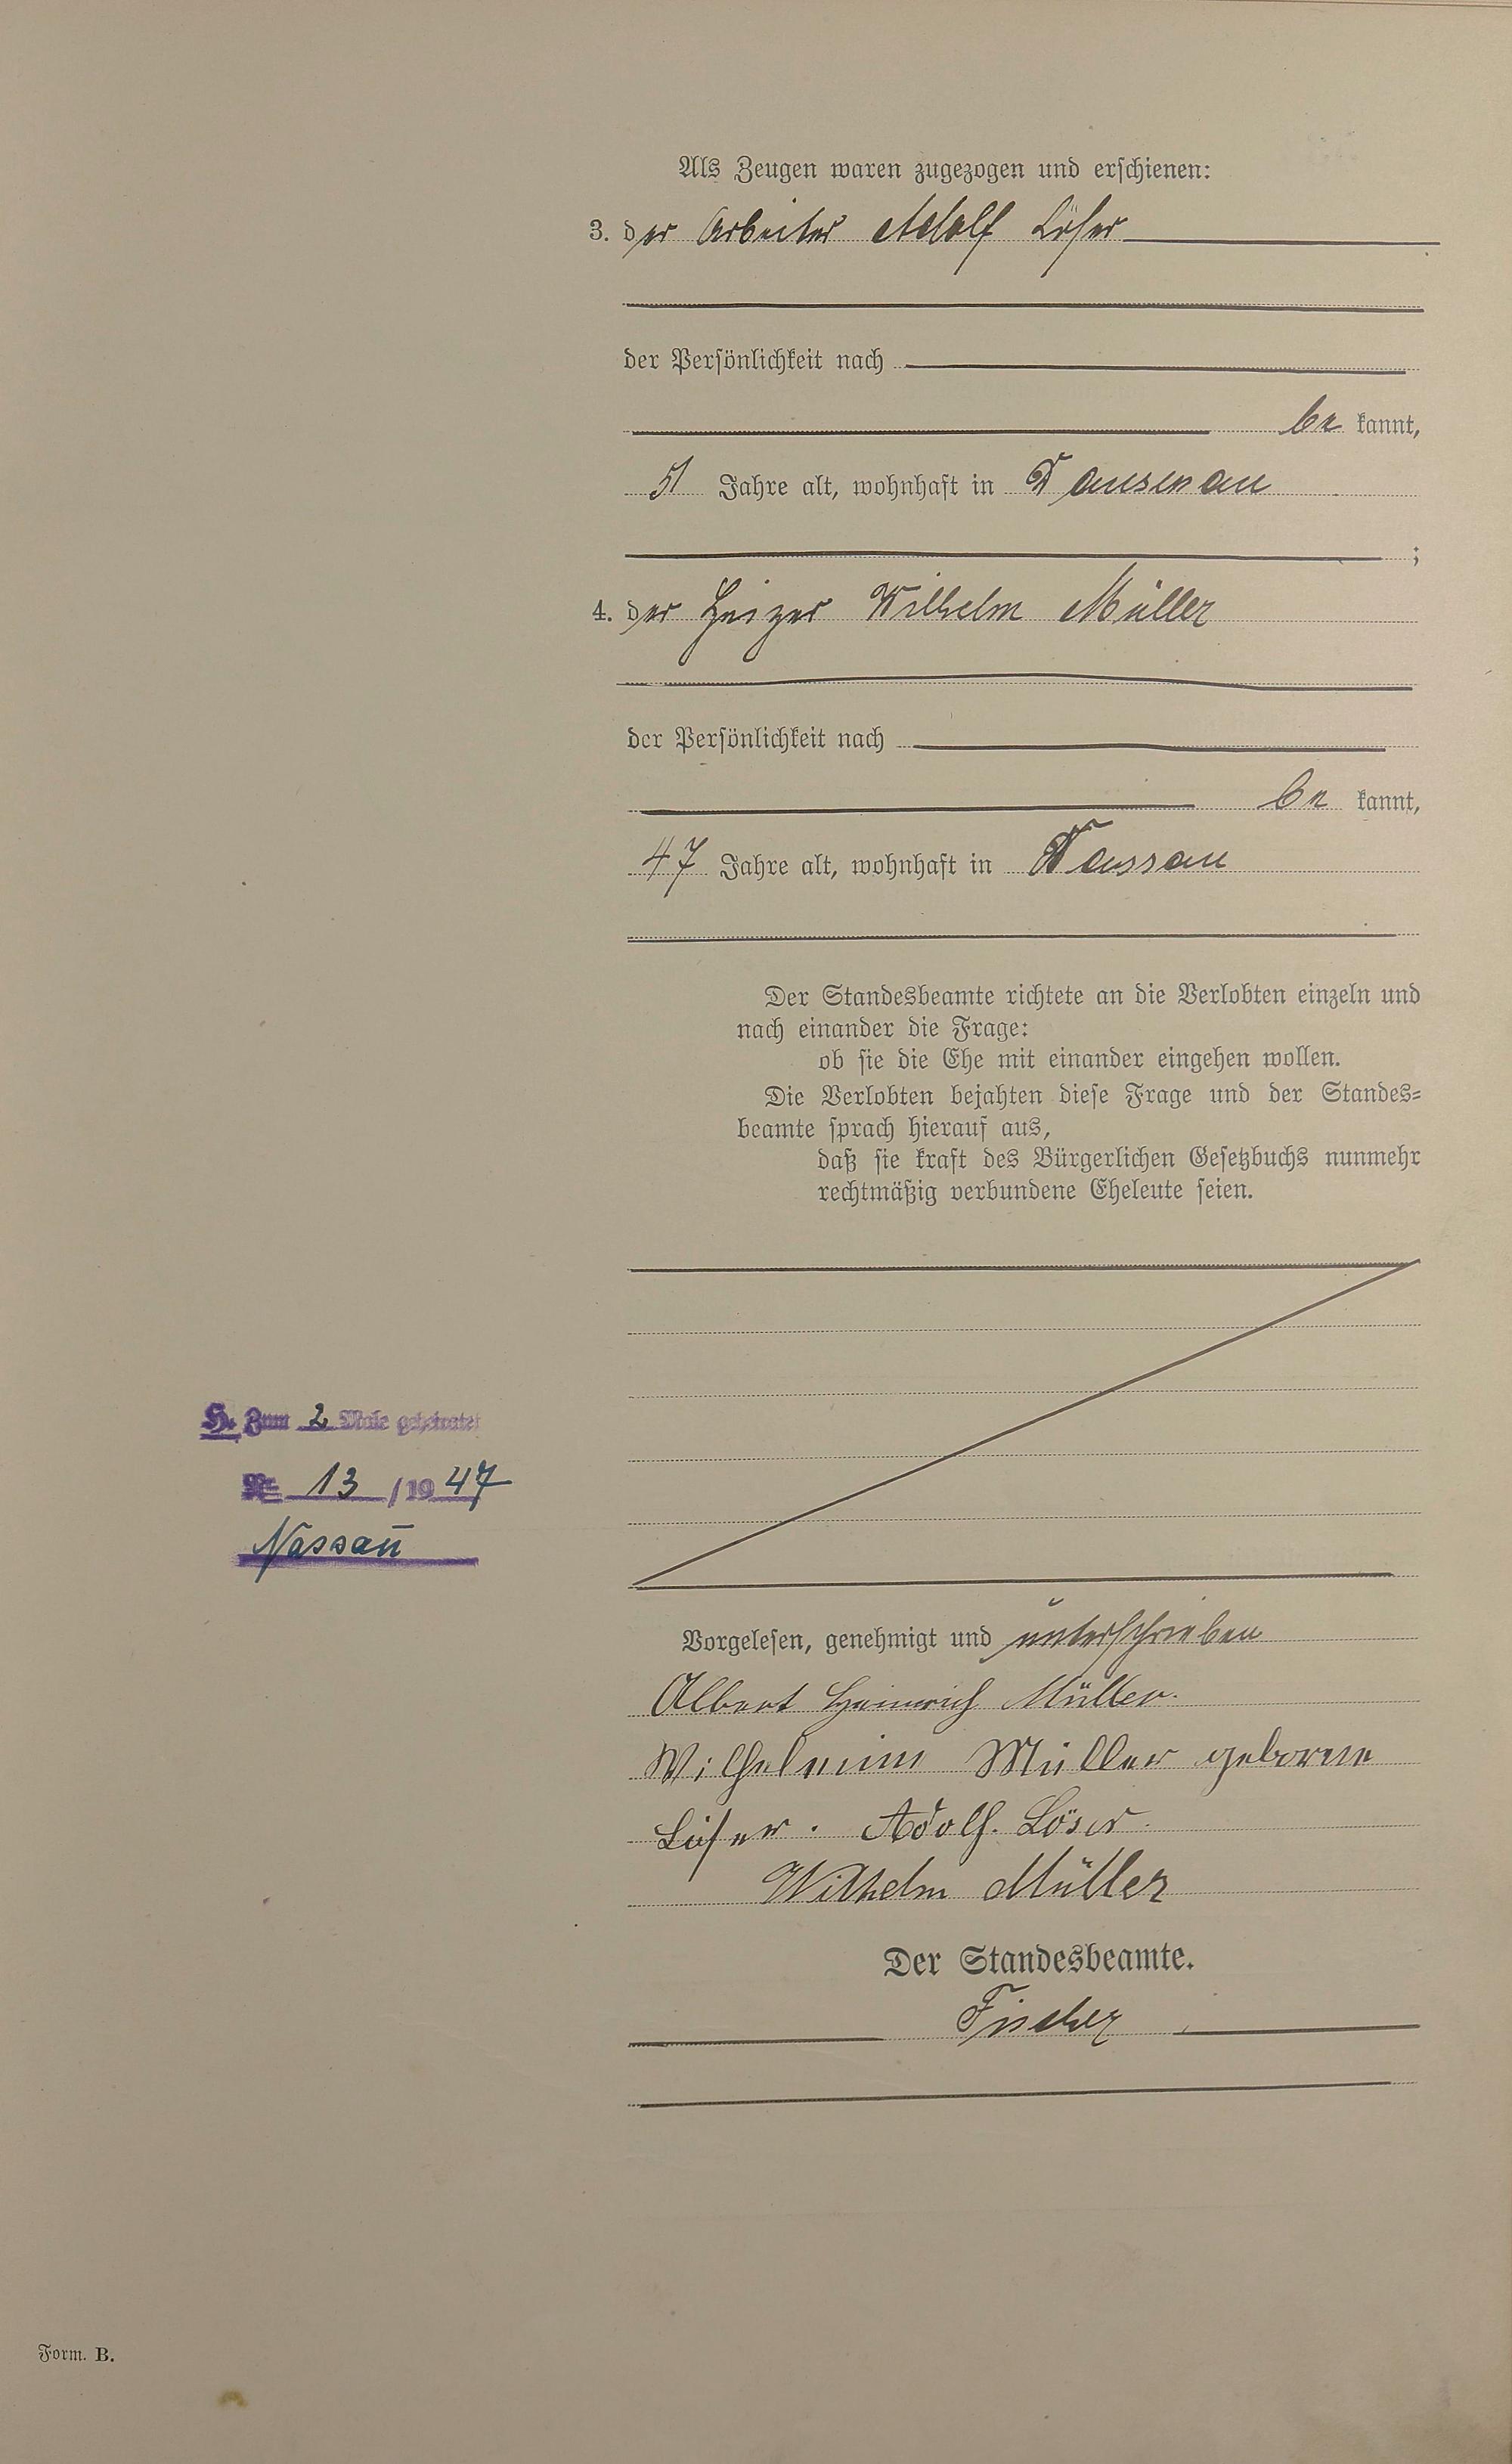 Als Zeugen waren zugezogen und erschienen:
3. der Arbeiter Adolf Löser
der Persönlichkeit nach
be kannt,
51 Jahre alt, wohnhaft in Dausenau
;
4. der Heizer Wilhelm Müller
der Persönlichkeit nach
be kannt,
47 Jahre alt, wohnhaft in Nassau
Der Standesbeamte richtete an die Verlobten einzeln und
nach einander die Frage:
ob sie die Ehe mit einander eingehen wollen.
Die Verlobten bejahten diese Frage und der Standes=
beamte sprach hierauf aus,
daß sie kraft des Bürgerlichen Gesetzbuchs nunmehr
rechtmäßig verbundene Eheleute seien.
H. Zum 2 Male geheiratet
Nr. 13 / 19 47
Nassau
Vorgelesen, genehmigt und unterschrieben
Albert Heinrich Müller.
Wilhelmine Müller geborene
Löser. Adolf. Löser.
Wilhelm Müller
Der Standesbeamte.
Fischer
Form. B.